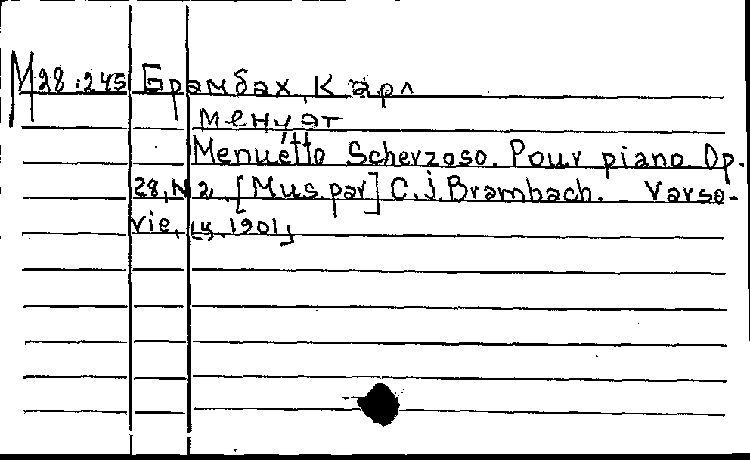 М28:245 Брамбах, Карл
менуэт
Menuetto Scherzoso. Pour piano Op.
28, N 2. [Mus. par] C. J. Brambach. Varso-
vie, 1901